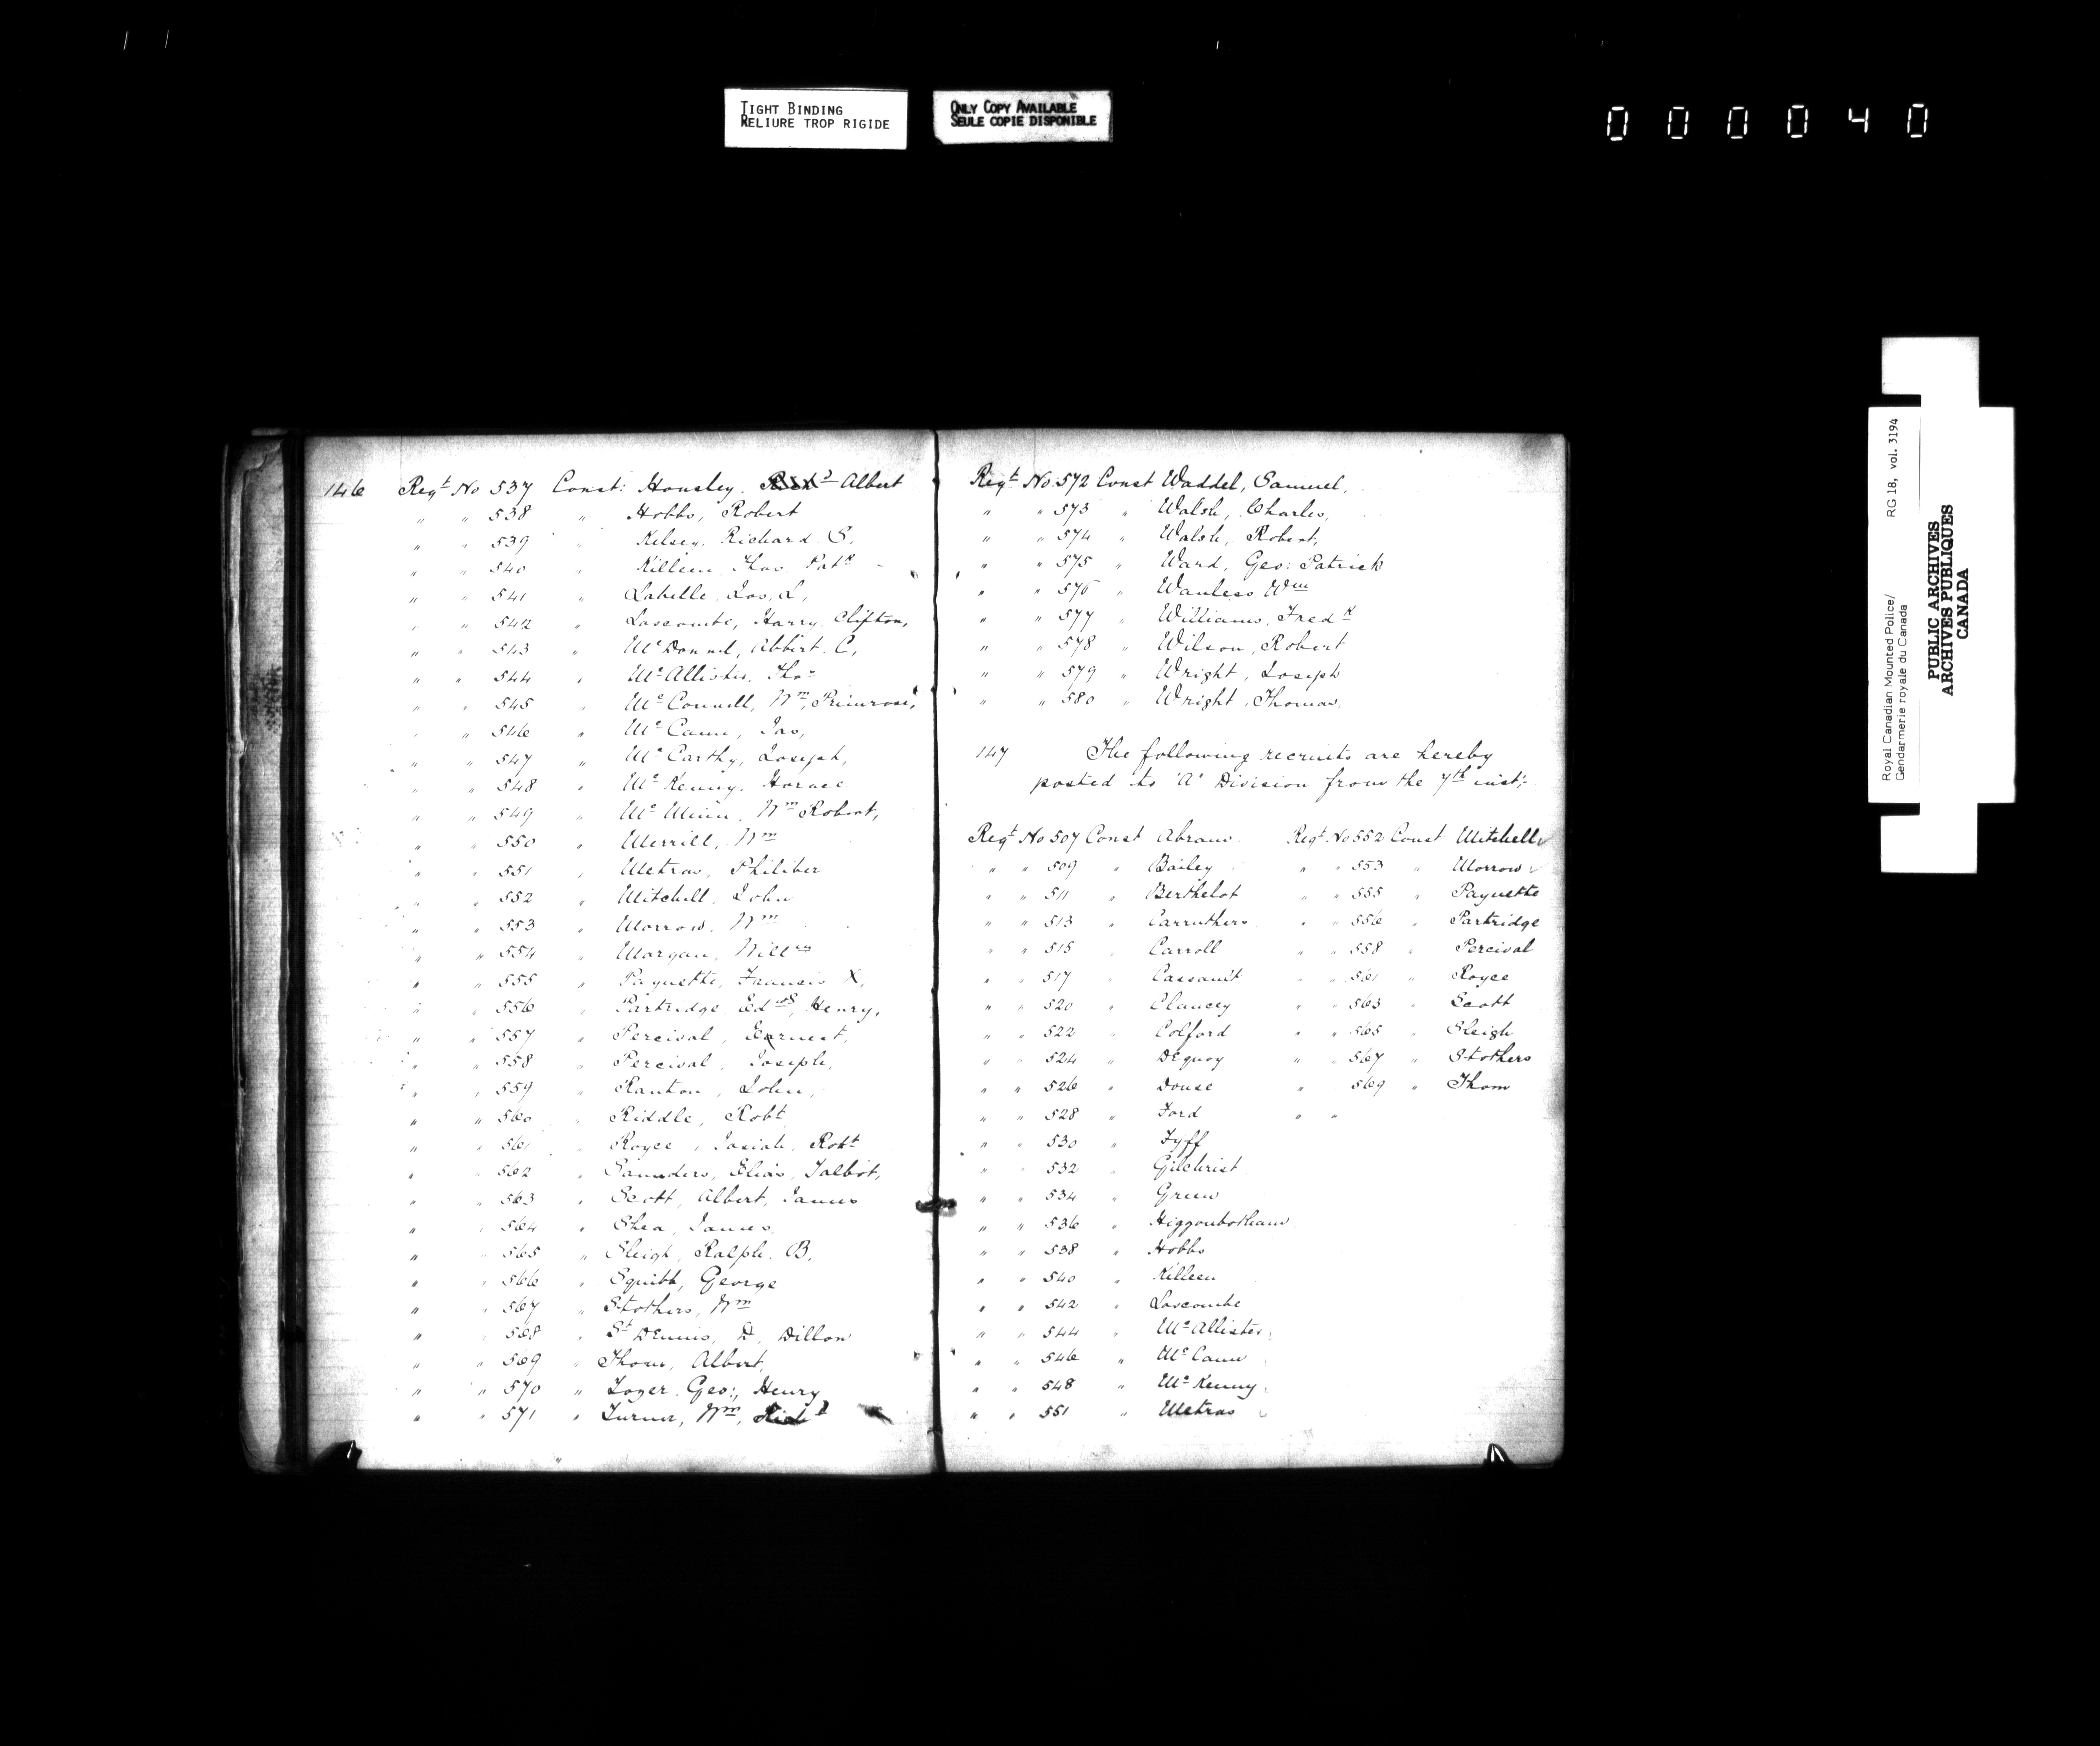 TIGHT BINDING
RELIURE TROP RIGIDE
ONLY COPY AVAILABLE
SEULE COPIE DISPONIBLE
000040
146 Regt No 537 Const: Housley. Albert
" " 538 " Hobbs, Robert
" " 539 " Kelsey. Richard S.
" " 540 " Killeen Thos Patk
" " 541 " Labelle, Jos, L,
" " 542 " Loscombe, Harry Clifton,
" " 543 " McDonnel, Albert. C,
" " 544 " McAllister. Thos
" " 545 " McConnell, Wm, Primrose,
" " 546 " McCann, Jas,
" " 547 " McCarthy, Joseph,
" " 548 " McKenny. Horace
" " 549 " McMinn, Wm Robert,
" " 550 " Merrill, Wm
" " 551 " Metras, Philiber
" " 552 " Mitchell. John
" " 553 " Morrow, Wm
" " 554 " Morgan, Willm
" " 555 " Payuette, Francis X,
" " 556 " Partridge Edwd, Henry,
" " 557 " Percival, Ernest,
" " 558 " Percival, Joseph,
" " 559 " Ranton, John,
" " 560 " Riddle, Robt
" " 561 " Royce, Josiah, Robt
" " 562 " Saunders, Elias, Talbot,
" " 563 " Scott, Albert, James
" " 564 " Shea, James,
" " 565 " Sleigh, Ralph. B.
" " 566 " Squibb, George
" " 567 " Stothers, Wm
" " 568 " St Dennis, D. Dillon
" " 569 " Thom, Albert,
" " 570 " Tozer. Geo:, Henry
" " 571 " Turner, Wm, Richd
Regt No 572 Const Waddel, Samuel,
" " 573 " Walsh, Charles,
" " 574 " Walsh, Robert,
" " 575 " Ward, Geo: Patrick
" " 576 " Wanless Wm
" " 577 " Williams, Fredk
" " 578 " Wilson, Robert
" " 579 " Wright, Joseph
" " 580 " Wright, Thomas,
147 The following recruits are hereby
posted to 'A' Division from the 7th inst:
Regt No 507 Const Abram Regt No 552 Const Mitchell
" " 509 " Bailey " " 553 " Morrow
" " 511 " Berthelot " " 555 " Payuette
" " 513 " Carruthers " " 556 " Partridge
" " 515 " Carroll " " 558 " Percival
" " 517 " Cassault " " 561 " Royce
" " 520 " Clancey " " 563 " Scott
" " 522 " Colford " " 565 " Sleigh
" " 524 " Dequoy " " 567 " Stothers
" " 526 " Douse " 569 " Thom
" " 528 " Ford " "
" " 530 Fyff
" " 532 " Gilchrist
" " 534 " Green
" " 536 " Higgonbotham
" " 538 " Hobbs
" " 540 " Killeen
" " 542 " Loscombe
" " 544 " McAllister
" " 546 " McCann
" " 548 " McKenny
" " 551 " Metras
Royal Canadian Mounted Police/ RG 18, vol. 3194
Gendarmerie royale du Canada
PUBLIC ARCHIVES
ARCHIVES PUBLIQUES
CANADA